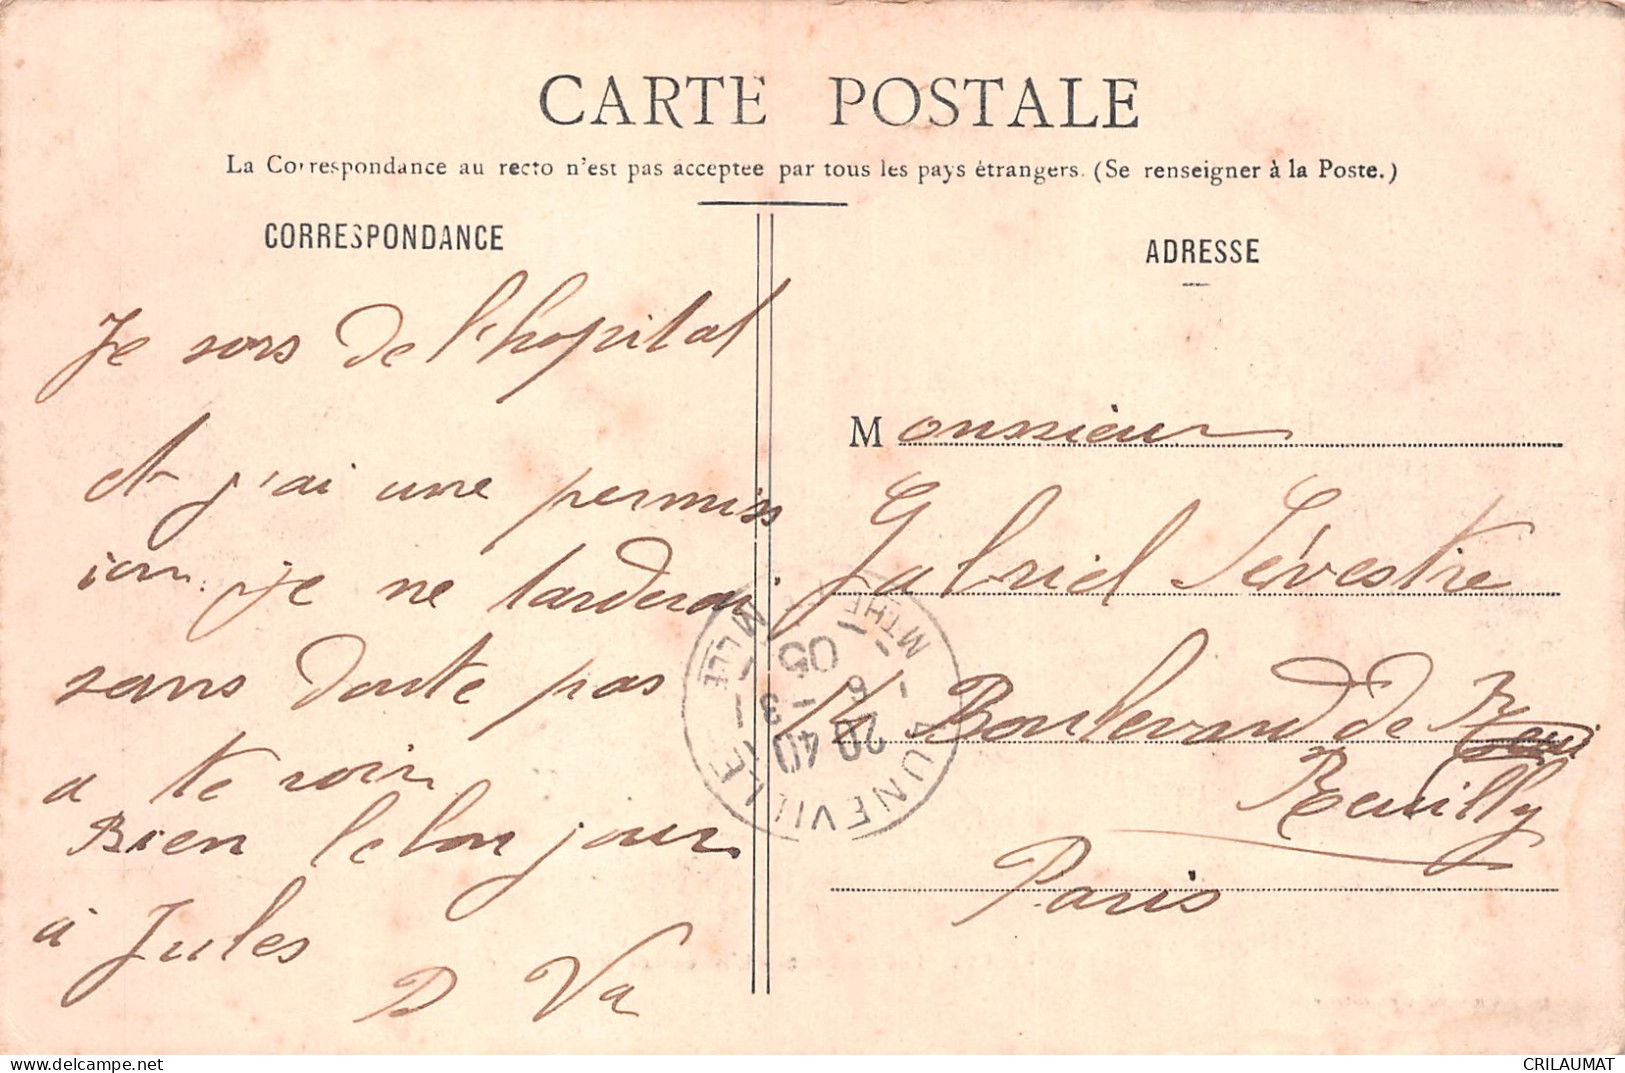 CARTE POSTALE
La Correspondance au recto n'est pas acceptee par tous les pays étrangers. (Se renseigner à la Poste.)
CORRESPONDANCE
Je sors de l'hopital
et j'ai une permiss
ion. je ne tarderai
sans doute pas
a te voir
Bien le bon jour
à Jules
D Va
ADRESSE
Monsieur
Gabriel Sévestre
Boulevard de
Reuilly
Paris
LUNEVILLE
MTHE
MLLE
20 40
6 - 3
05
www.delcampe.net
CRILAUMAT